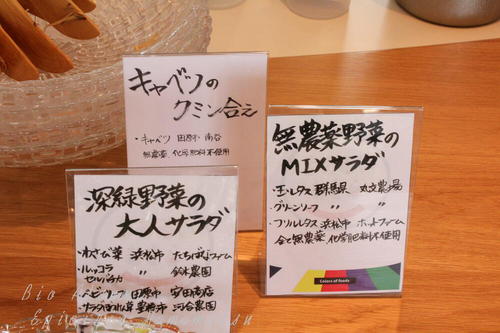 キャベツの
クミン合え
・キャベツ 田原市 南谷
無農薬、化学肥料不使用
無農薬野菜の
MIXサラダ
・玉レタス 群馬県 丸文農場
・グリーンリーフ 〃 〃
・フリルレタス 浜松市 ホットファーム
全て無農薬 化学肥料不使用
Colors of foods
深緑野菜の
大人サラダ
・わさび菜 浜松市 たちばなファーム
・ルッコラ 〃 鈴木農園
セルバチカ
・ベビーリーフ 田原市 安田商店
・サラダほうれん草 豊橋市 河合農園
Bio